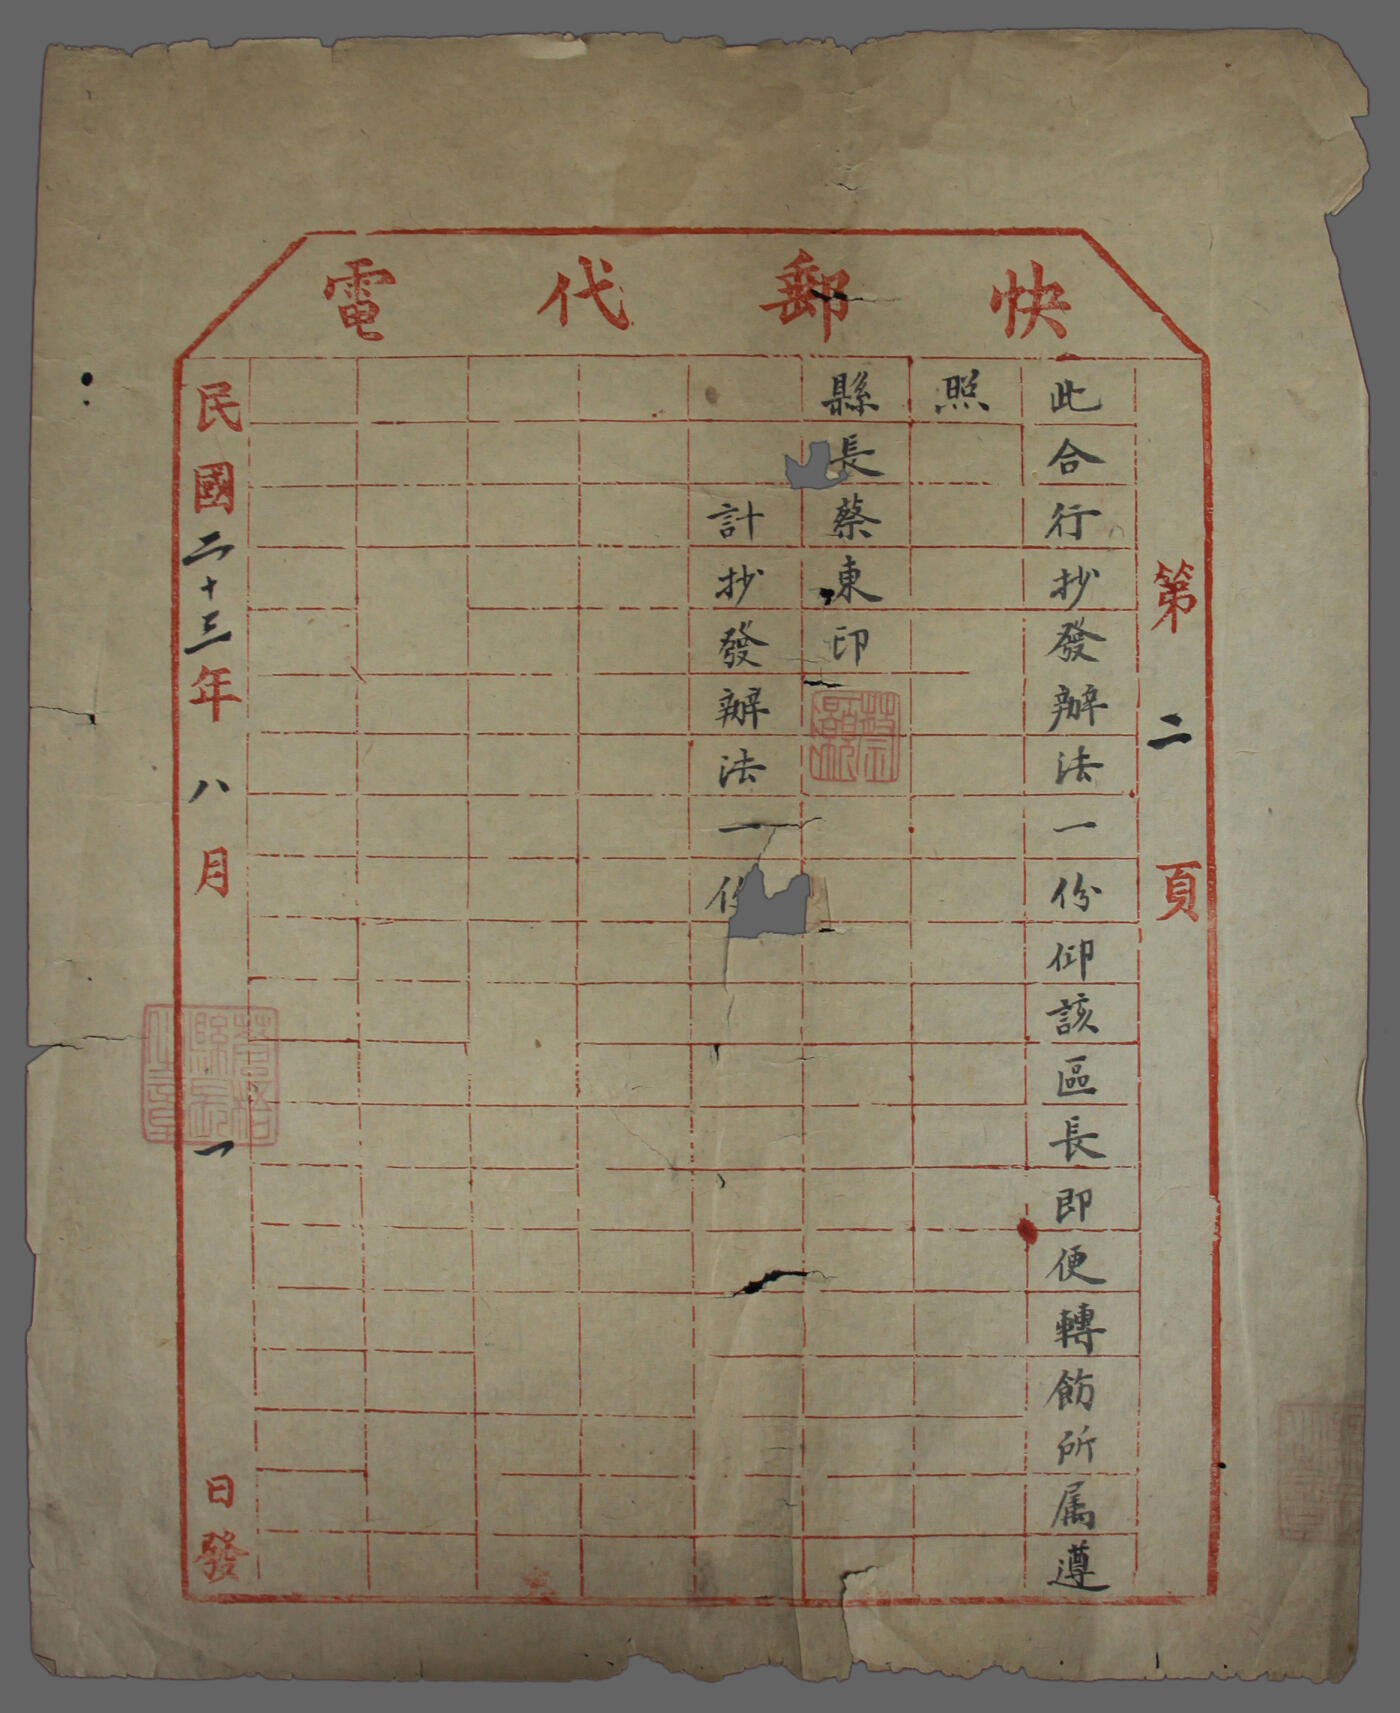 快郵代電
第二頁
此合行抄發辦法一份仰該區長即便轉飭所属遵
照
縣長蔡東印
計抄發辦法一份
民國二十三年八月一日發